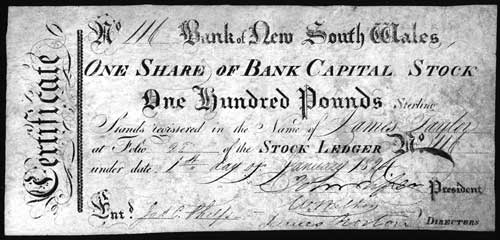 Certificate
No 116 Bank of New South Wales,
ONE SHARE OF BANK CAPITAL STOCK
One Hundred Pounds Sterling
Stands registered in the Name of James Taylor
at Folio 95 of the STOCK LEDGER No 116
under date 1st day of January
President
Entd
DIRECTORS